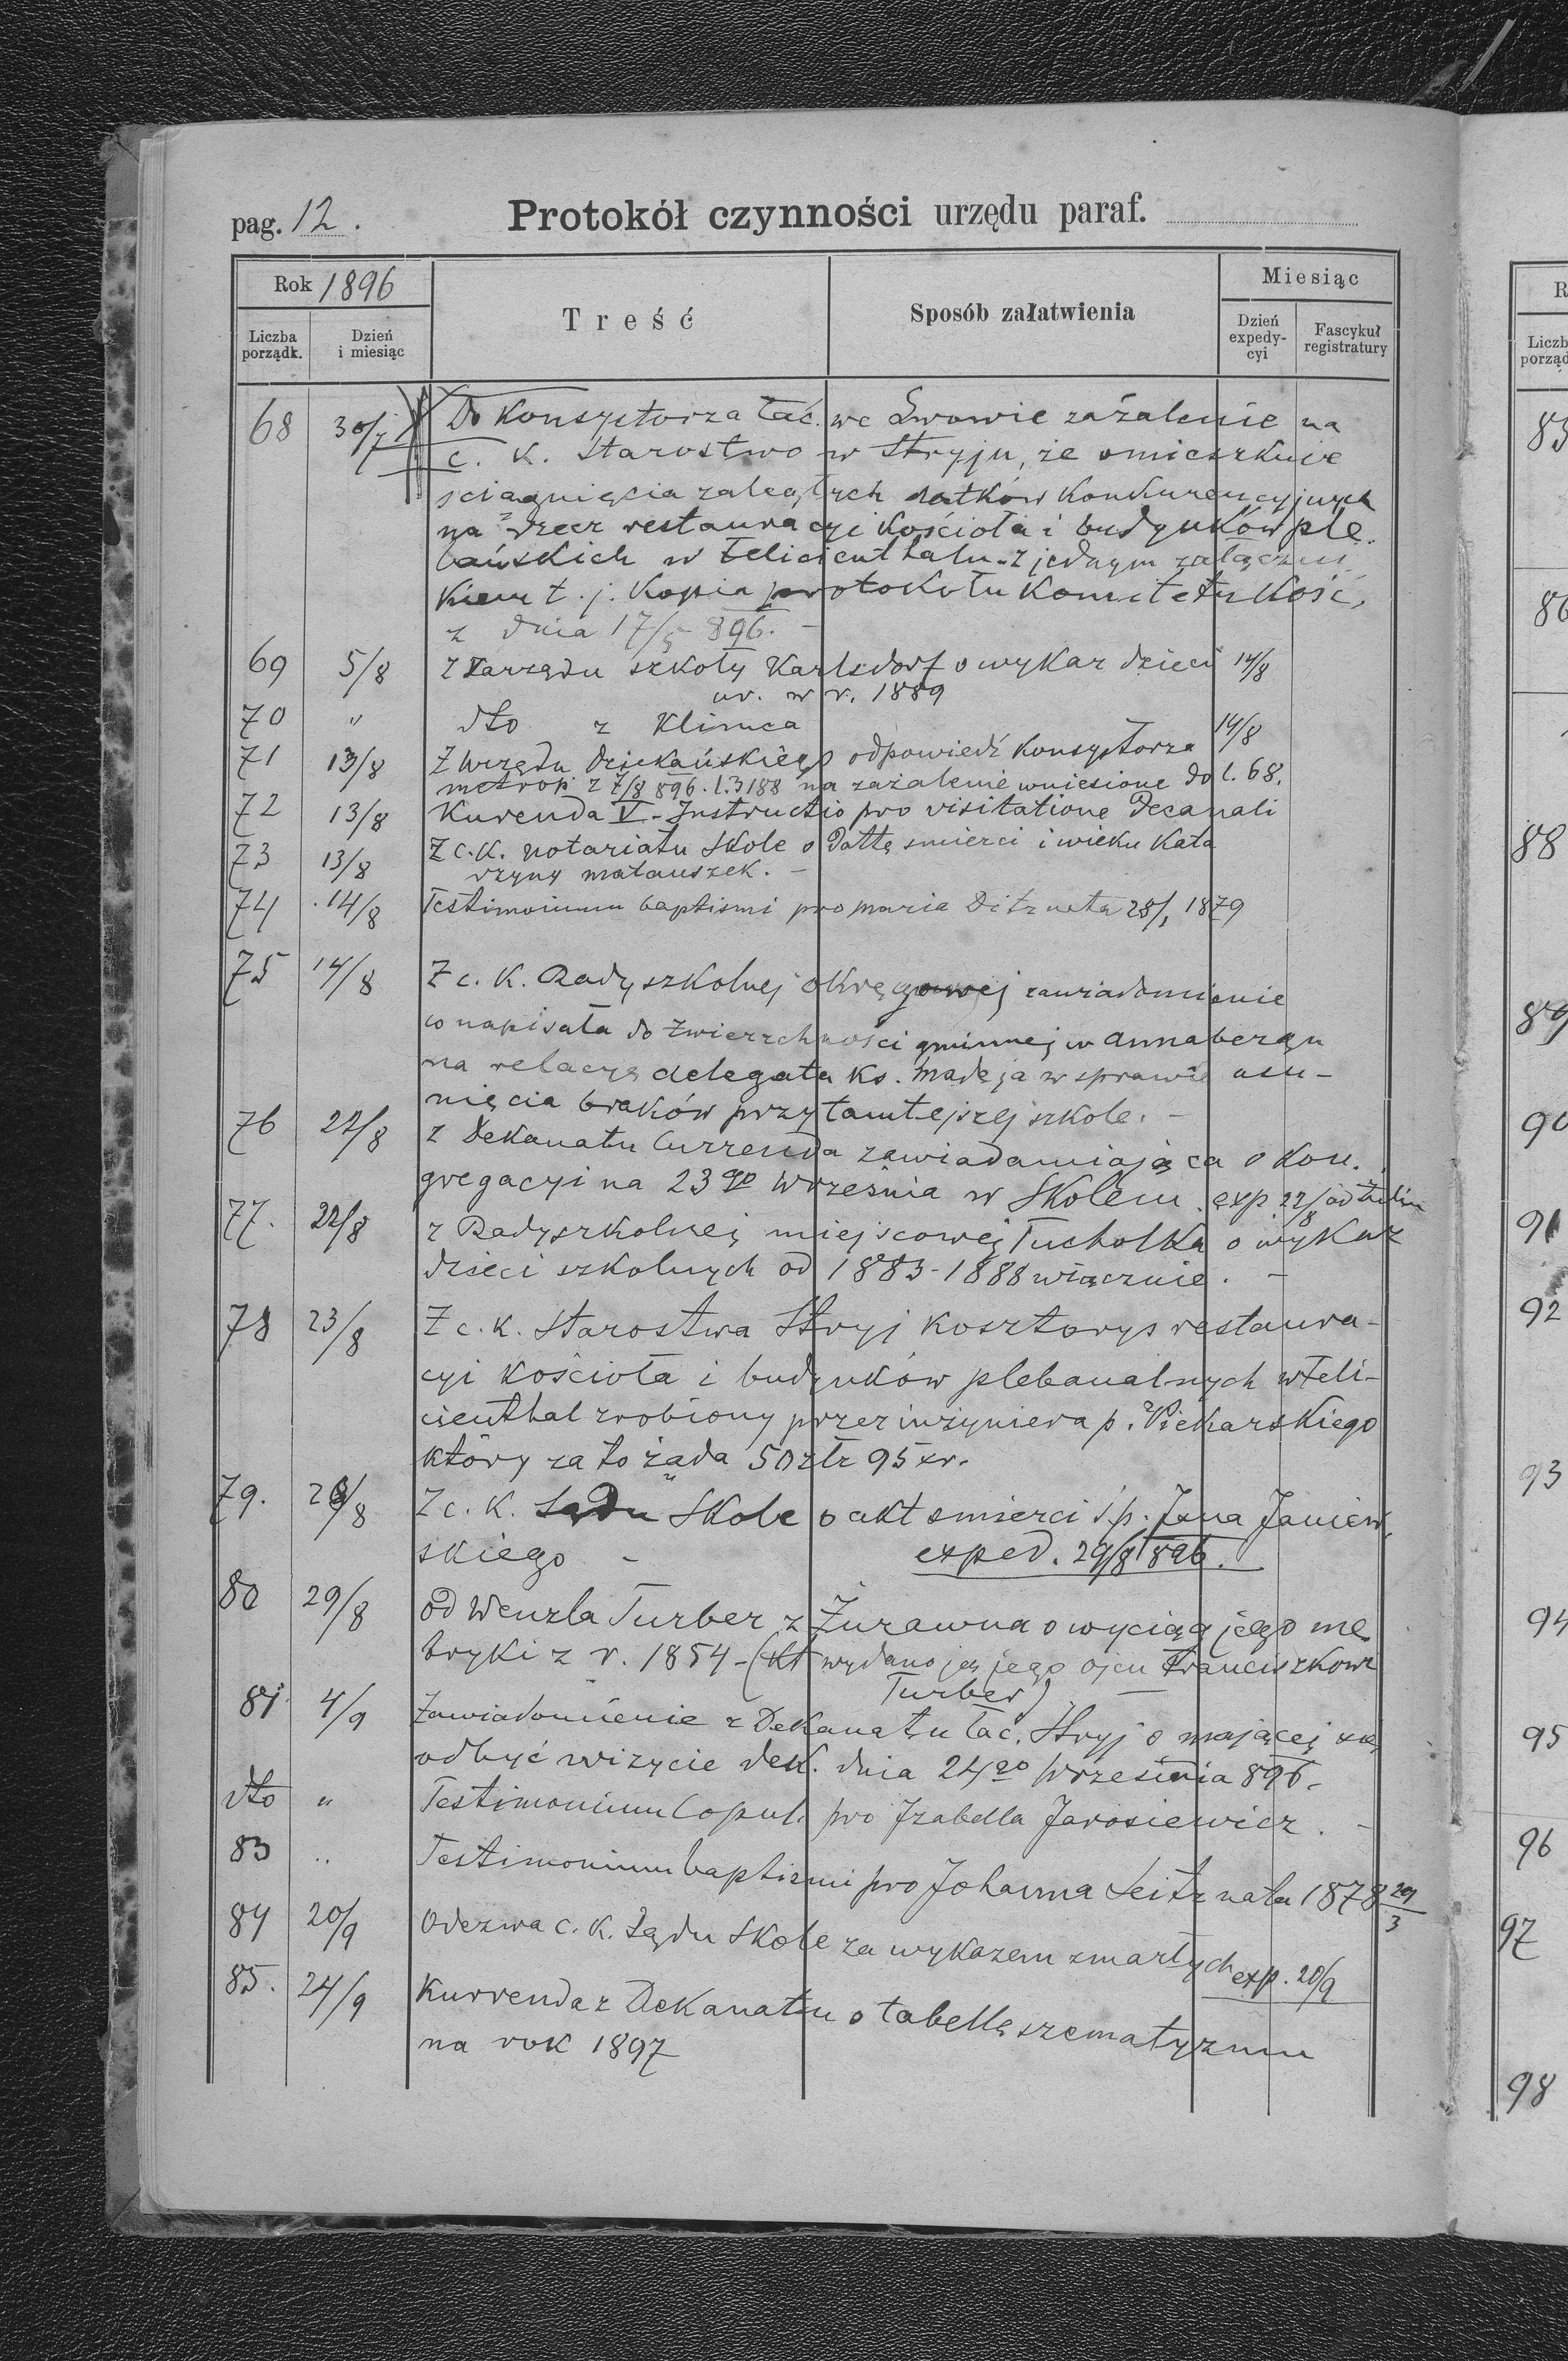 pag. 12.
Protokół czynności urzędu paraf.
Rok 1896
Liczba porządk.
Dzień i miesiąc
Treść
Sposób załatwienia
Miesiąc
Dzień expedycyi
Fascykuł registratury
68 30/7 Do Konsystorza łać. we Lwowie zażalenie na
c. k. Starostwo w Stryju, że omieszkuje
sciągnięcia zaległych datków konkurencyjnych
na rzecz restauracyi kościoła i budynków ple
bańskich w Felicienthalu z jednym załączni
kiem t. j. kopia protokołu komitetu kośc.
z dnia 17/5 896. –
69 5/8 z Zarządu szkoły Karlsdorf o wykaz dzieci 14/8
ur. w r. 1889
70 " dto z Klimca 14/8
71 13/8 Z urzędu dziekańskiego odpowiedź konsystorza
metrop. z 7/8 896. l. 3188 na zażalenie wniesione do l. 68.
72 13/8 Kurenda V - Instructio pro visitatione Decanali
73 13/8 Z c. k. notariatu Skole o dattę smierci i wieku Kata
rzyny Matauszek. –
74 14/8 Testimonium baptismi pro Maria Ditz nata 28/1 1879
75 14/8 Z c. k. Rady szkolnej okręgowej zawiadomienie
co napisała do Zwierzchności gminnej w Annabergu
na relacyę delegata ks. Madeja w sprawie usu-
nięcia braków przy tamtejszej szkole. –
76 22/8 z Dekanatu Currenda zawiadamiająca o kon.
gregacyi na 23go Września w Skolem. exp. 22/8 ad
77. 22/8 z Rady szkolnej miejscowej Tucholka o wykaz
dzieci szkolnych od 1883-1888 włącznie. –
78 23/8 Z c. k. Starostwa Stryj kosztorys restaura-
cyi kościoła i budynków plebanalnych w Feli-
cienthal zrobiony przez inżyniera p. Piekarskiego
który za to żąda 50 złr 95 xr.
79. 28/8 Z c. k. Sądu Skole o akt smierci ś.p. Jana Janiew.
skiego – exped. 29/8 896.
80 29/8 od Wenzla Turber z Żurawna o wyciąg jego me
tryki z r. 1854 – ( wydano ją jego ojcu Franciszkowi
Turber) –
81 4/9 Zawiadomienie z Dekanatu łać. Stryj o mającej się
odbyć wizycie dek. dnia 24go Września 896.
dto " Testimonium Copul. pro Izabella Jarosiewicz. –
83 " Testimonium baptismi pro Johanna Seitz nata 1878 29/3
84 20/9 Odezwa c. k. Sądu Skole za wykazem zmarłych exp. 20/9
85. 24/9 Kurrenda z Dekanatu o tabellę szematyzmu
na rok 1897
R
Liczb
porząd
85
86
88
89
90
91
92
93
94
95
96
97
98